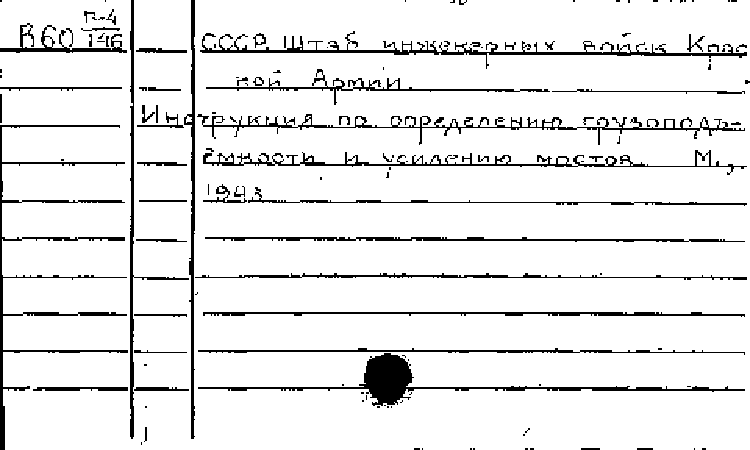 В60 П-4/146
СССР. Штаб инженерных войск Крас
ной Армии.
Инструкция по определению грузоподъ-
ёмности и усилению мостов. М.,
1943